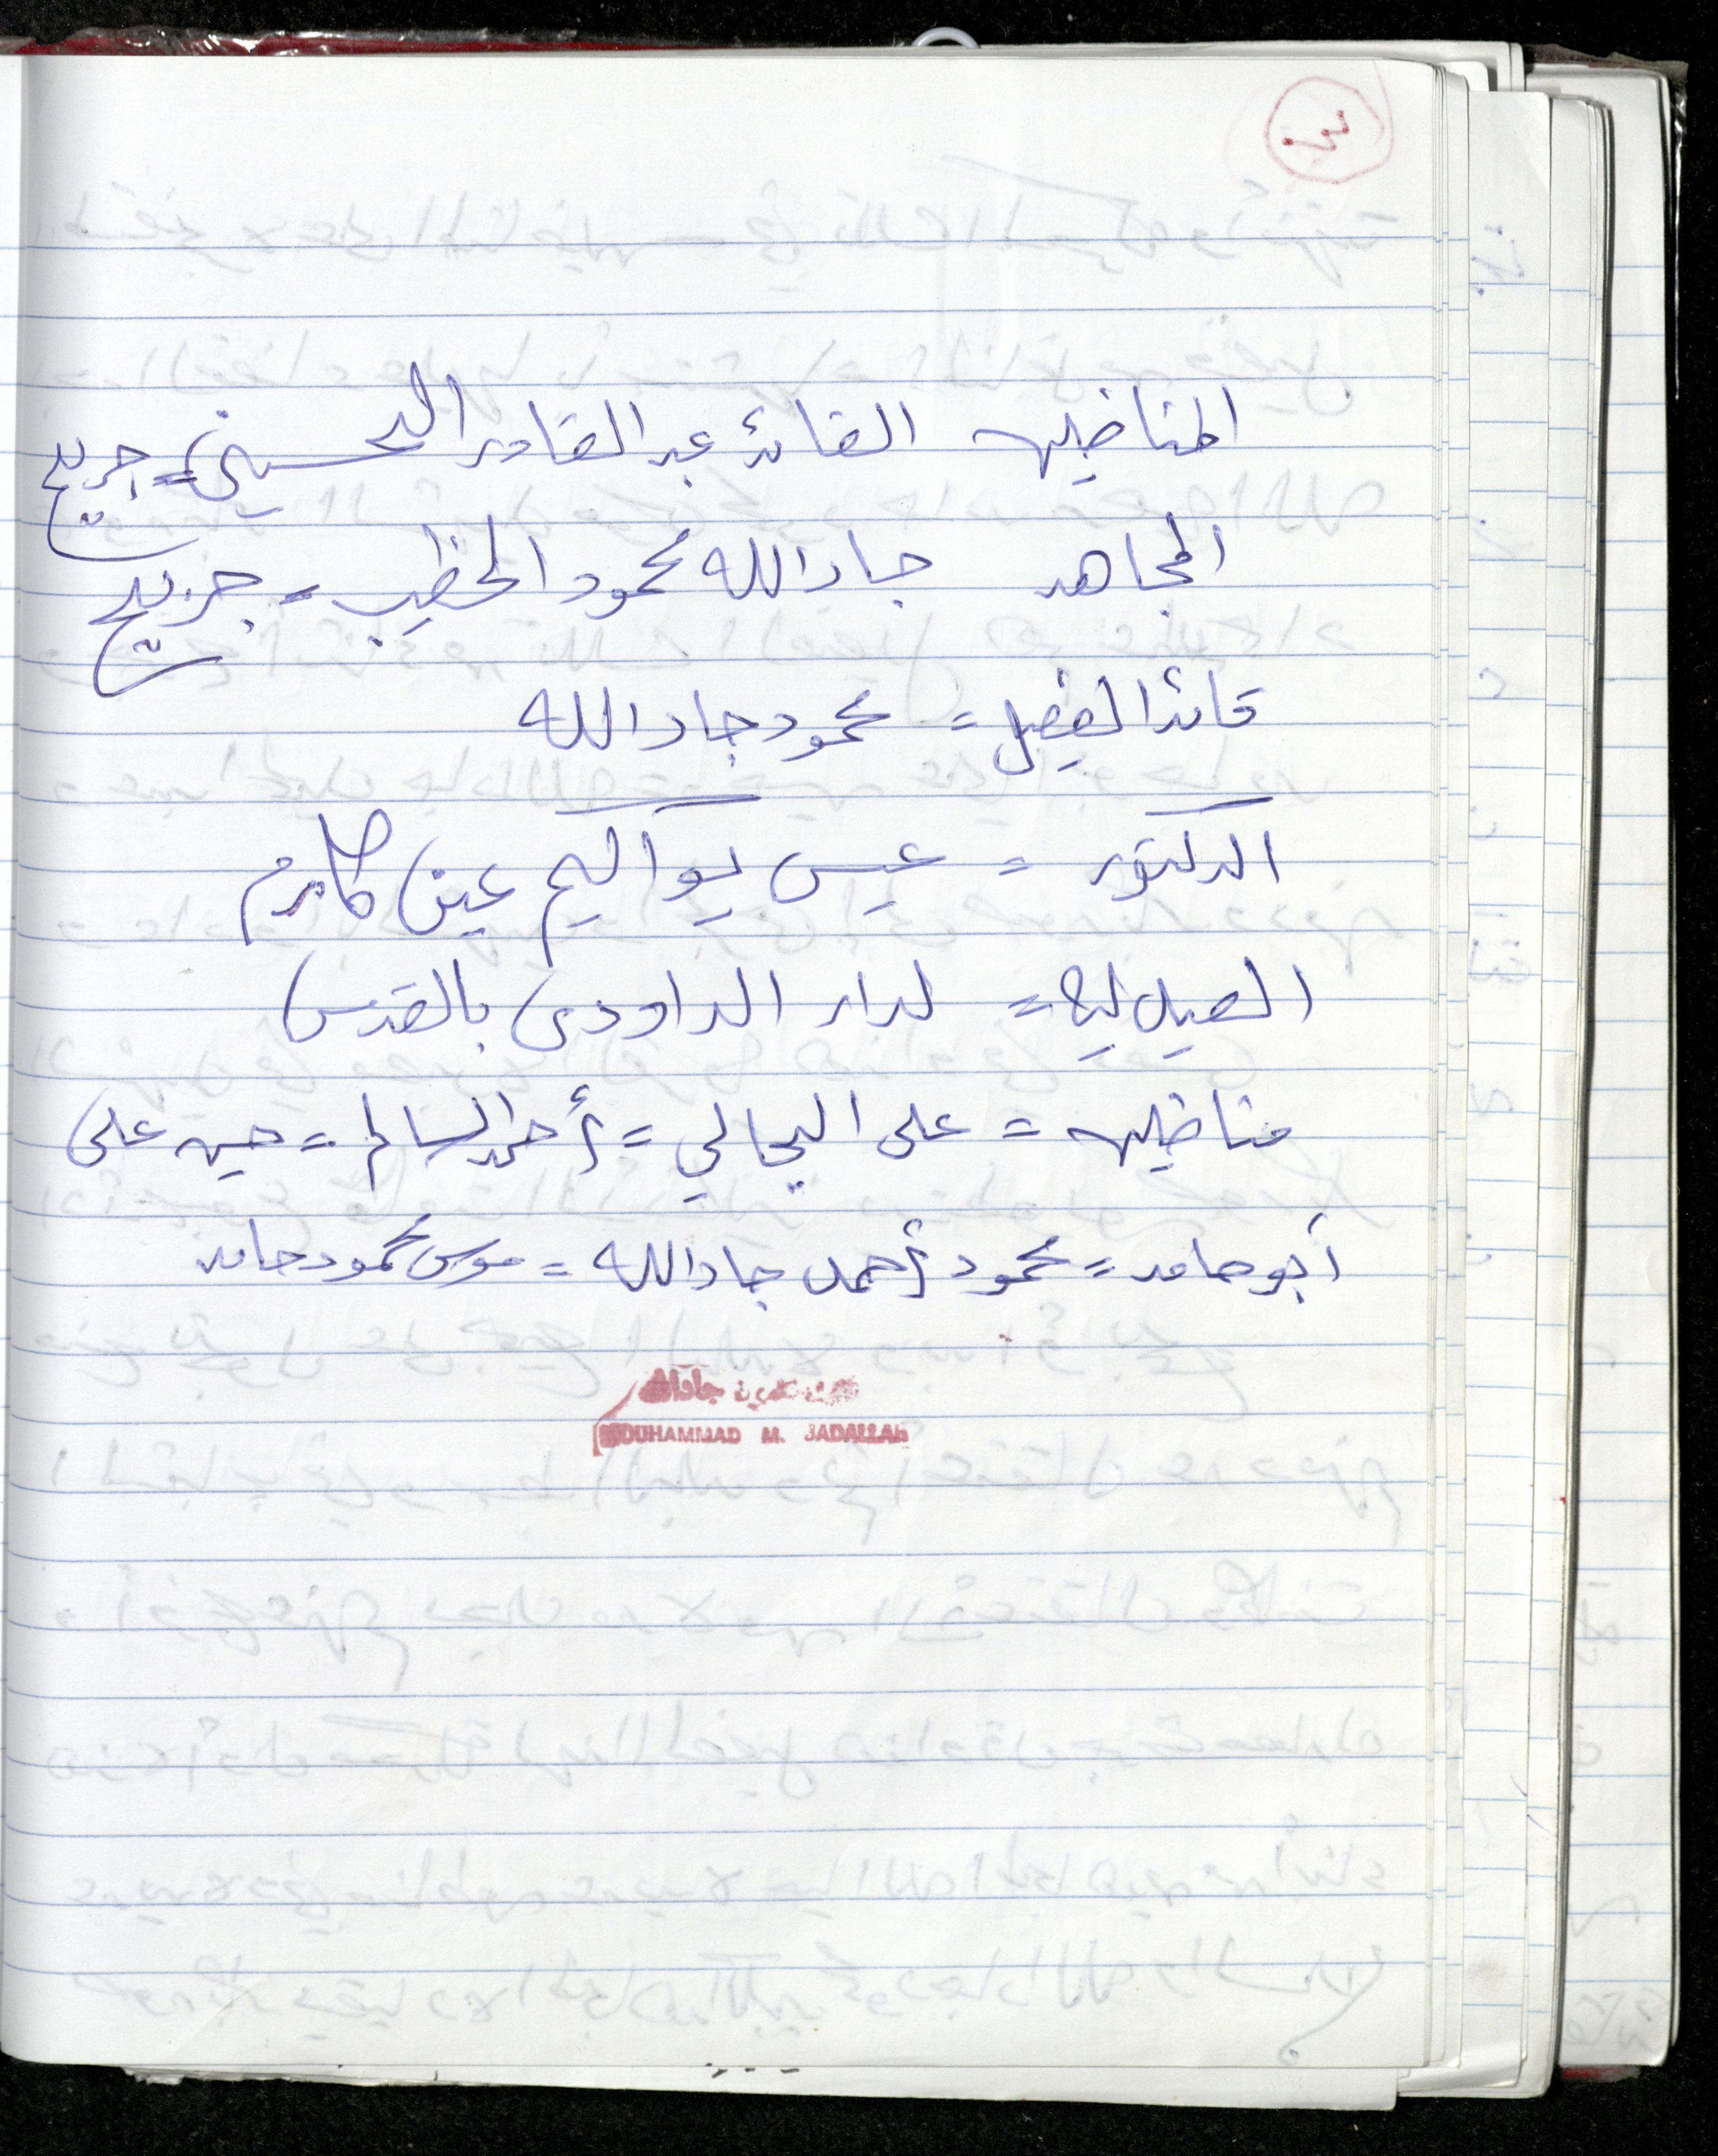 ٣
المناضلين القائد عبد القادر الحسيني = جريح
المجاهد جاد الله محمود الخطيب = جريح
قائد الفصيل = محمود جاد الله
الدكتور = عيسى يواكيم عين كارم
لدار الداودي بالقدس
مناضلين = على البجالي = أحمد السالم = حسين على
أبو حامد = محمود أحمد جاد الله = موسى محمود حامد
جادالله
MUHAMMAD M. JADALLAH